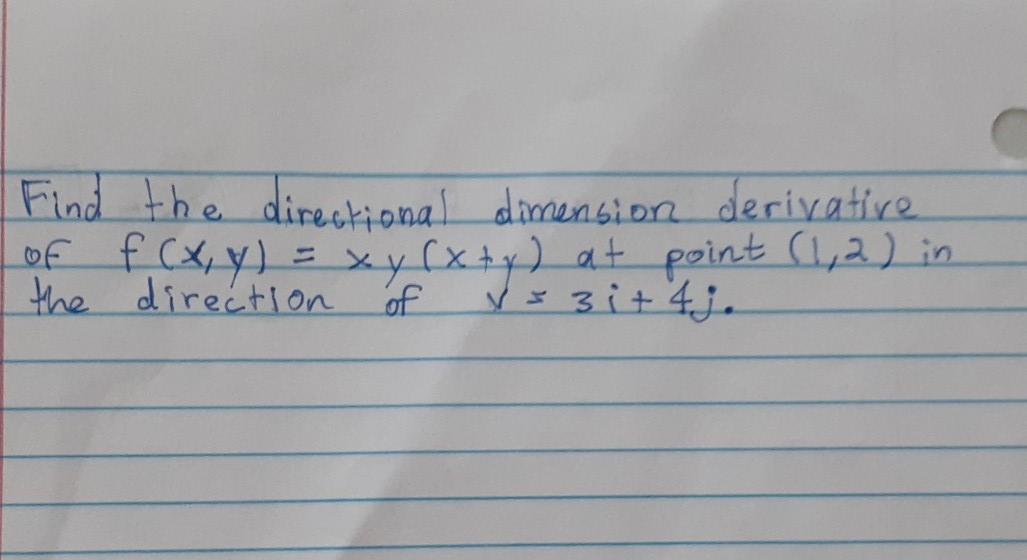 Find the directional dimension derivative
of f(x,y) = xy(x+y) at point (1,2) in
the direction of v = 3i+4j.